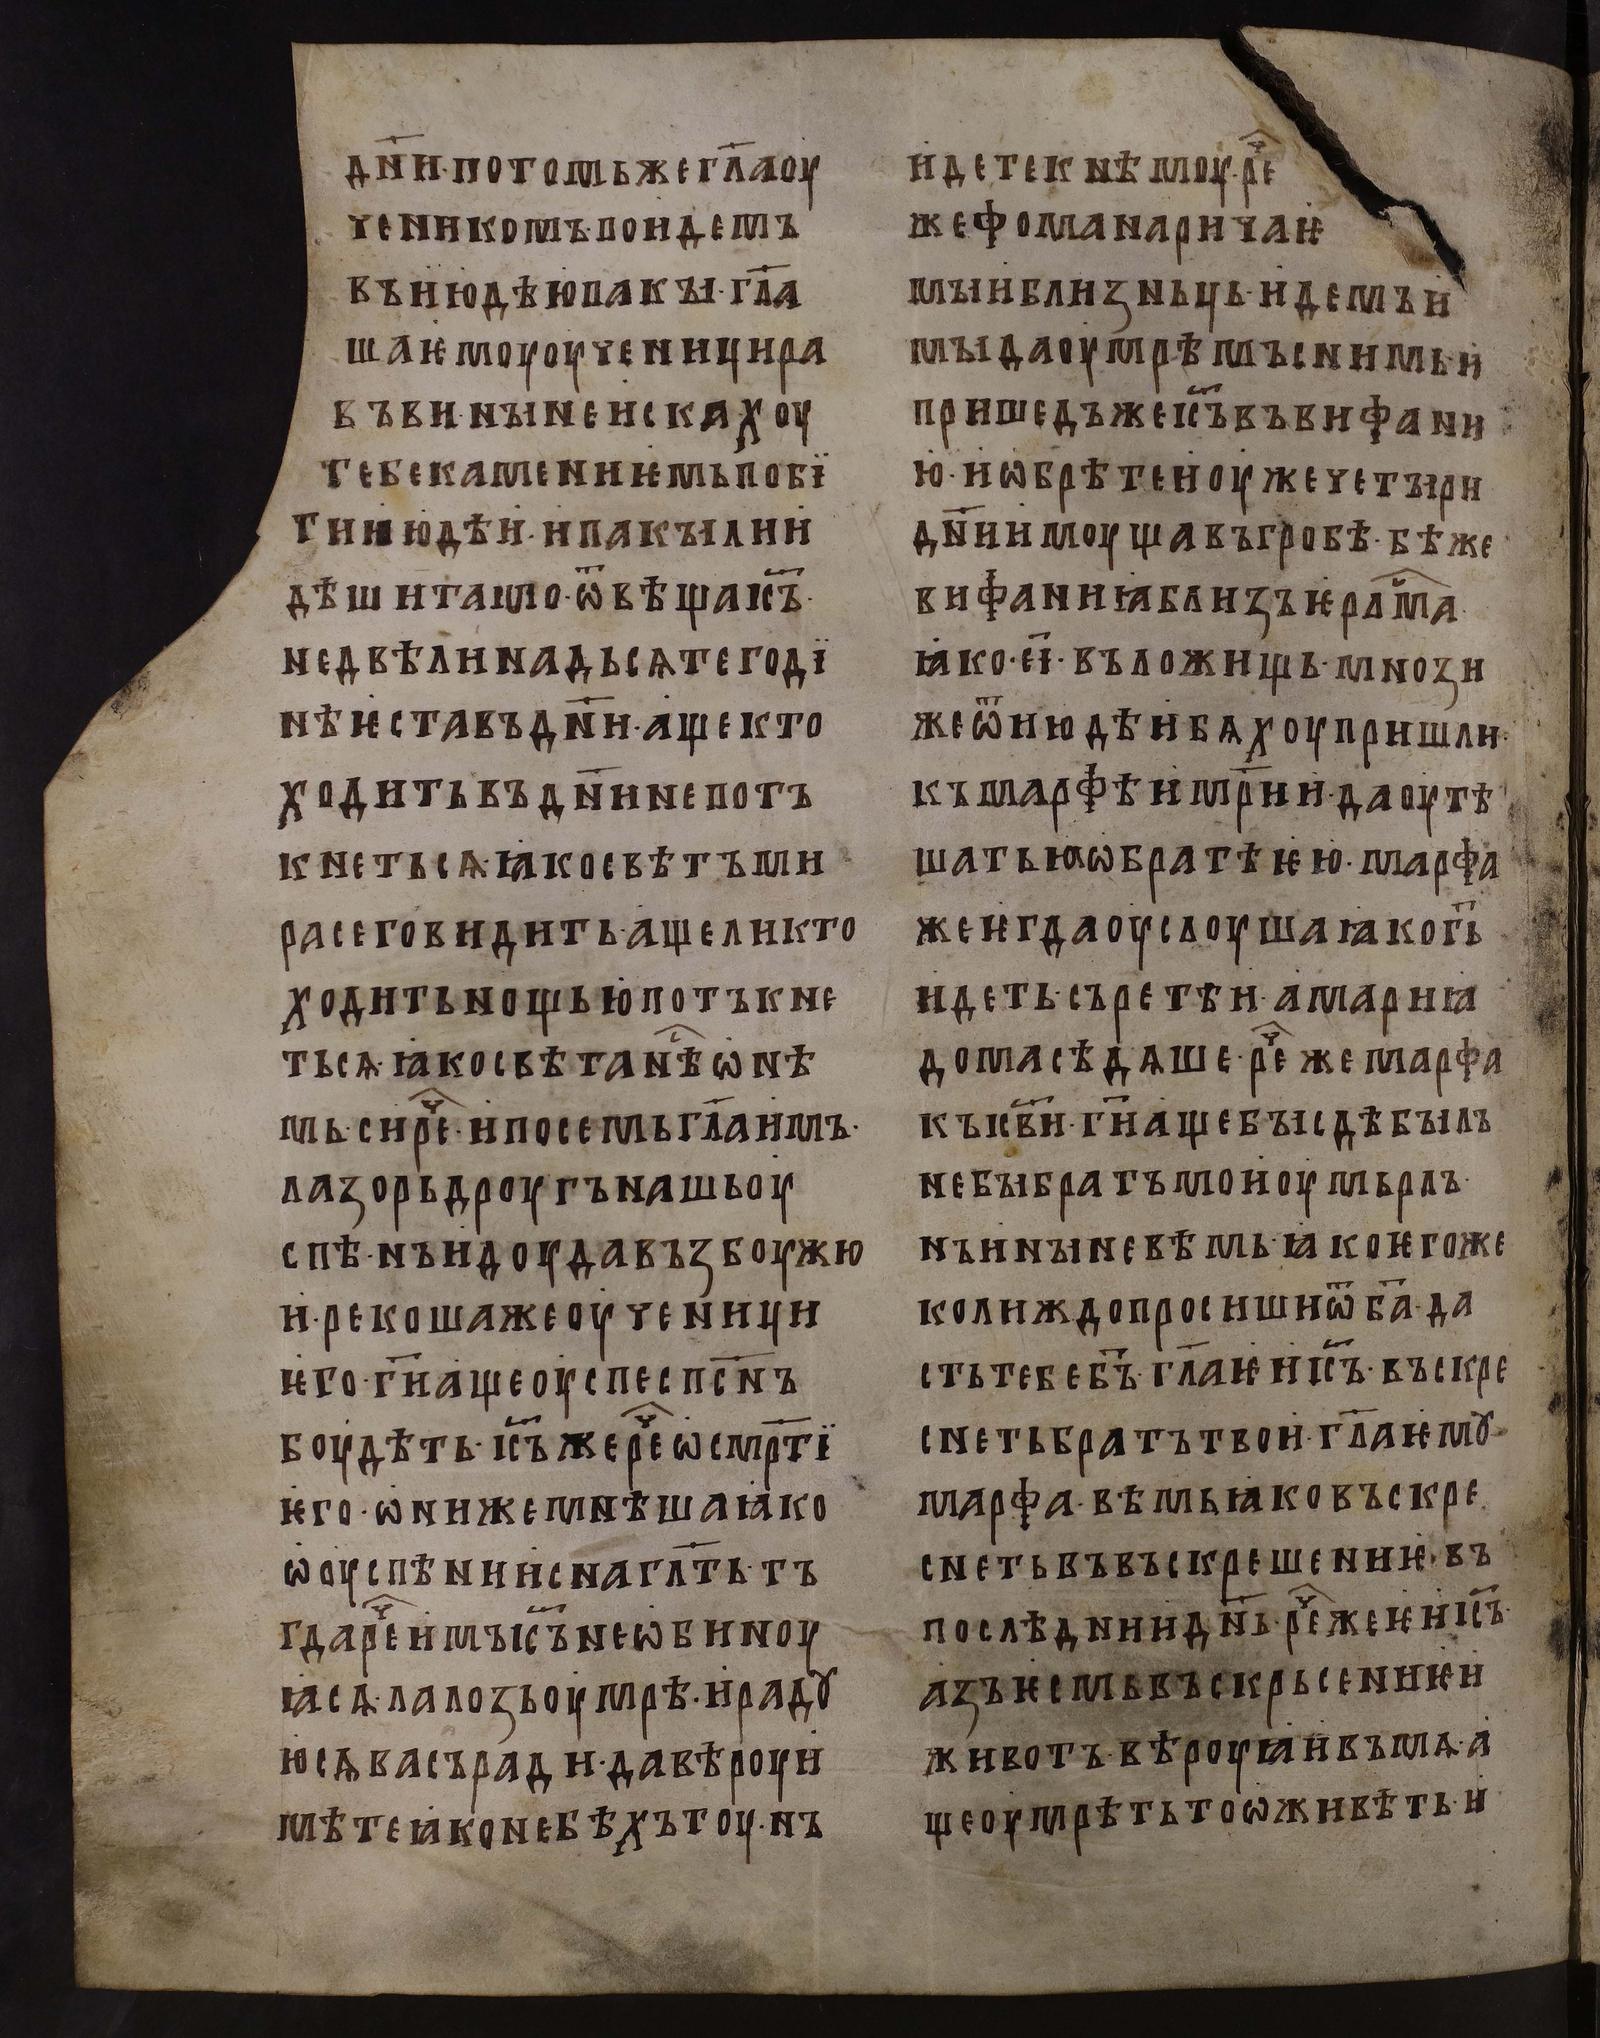 дн҃и·потомьжегл҃аоу
ченикомъ·поидемъ
въиюдѣюпакꙑ·гл҃а
шаѥмоуоученицира
въви·нꙑнеискахоу
тебекамениѥмьпобї
тииюдѣи·ипакꙑлии
дѣшитамо·ѿвѣщаіс҃ъ·
недвѣлинадьсѧтегодї
нѣѥставъдн҃и·ащекто
ходитьвъдн҃инепотъ
кнетьсѧ·ꙗкосвѣтъми
расеговидить·ащеликто
ходитьнощьюпотъкне
тьсѧ·ꙗкосвѣтанѣⷭ҇ѡнѣ
мь·сиреⷱ҇·ипосемьгл҃аимъ·
лазорьдроугънашьоу
спѣ·нъидоудавъзбоужю
и·рекошажеоученици
ѥго·ги҃ащеоуспеспс҃нъ
боудѣть·іс҃ъжереⷱ҇ѡсмр҃тї
ѥго·ѡнижемнѣшаꙗко
ѡоуспѣнииснагл҃ть·тъ
гдареⷱ҇имъіс҃ънеѡбиноу
ꙗсѧ·лалозьоумрѣ·ирадꙋ
юсѧвасъради·давѣроуи
мѣтеꙗконебѣхътоу·нъ
идетекнѣмоу·реⷱ҇
жефоманаричаѥ
мꙑиблизньць·идемъи
мꙑдаоумрѣмъснимь·и
пришедъжеіс҃ъвъвифани
ю·иѡбрѣтеиоужечетꙑри
дн҃иимоущавъгробѣ·бѣже
вифаниꙗблизъѥрлⷭ҇ма
ꙗко·е҃і·въложищь·мнози
жеѿиюдѣибѧхоупришли·
къмарфѣимр҃ии·даоутѣ
шатьюѡбратѣѥю·марфа
жеѥгдаоуслоушаꙗкогь҃
идеть·сърете҅и·амариꙗ
домасѣдѧше·реⷱ҇жемарфа
къісв҃и·ги҃ащебꙑсдѣбꙑлъ
небꙑбратъмоиоумьрлъ·
нъинꙑневѣмь·ꙗкоѥгоже
колиждопросишиѿба҃·да
стьтебебъ҃·гл҃аѥиіс҃ъ·въскре
снетьбратътвои·гл҃аѥмꙋ
марфа·вѣмьꙗковъскре
снетьвъвъскрешениѥ·въ
послѣдниидн҃ь·реⷱ҇жеѥиіс҃ъ·
азъѥсмьвъскрьсениѥи
животъ·вѣроуꙗивъмѧ·а
щеоумрѣтьтоѡживѣть·и